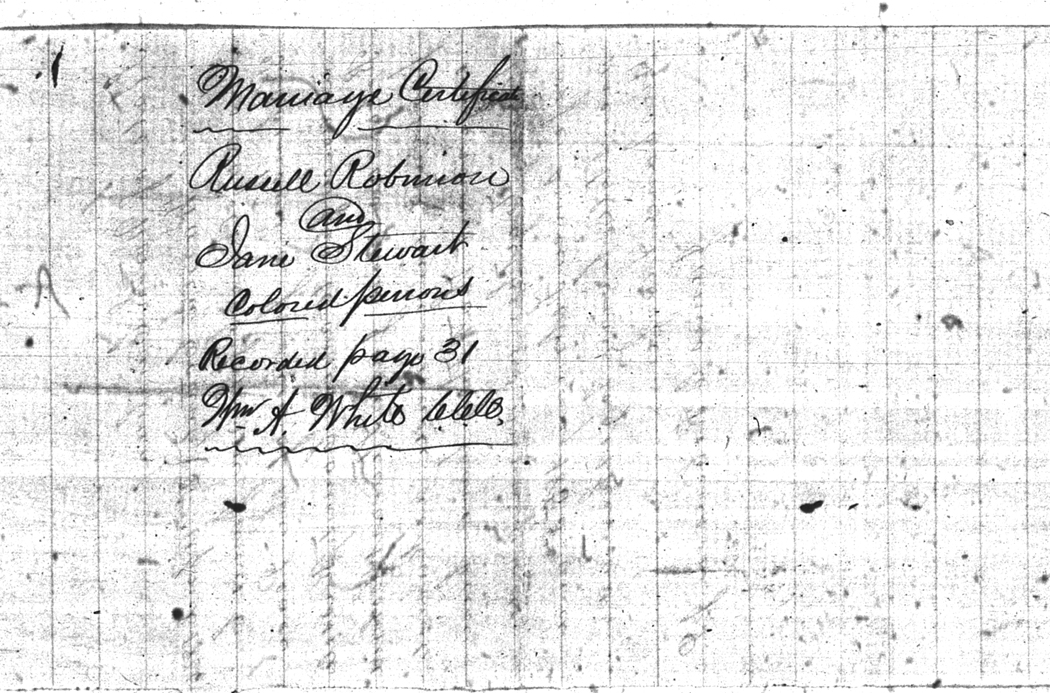 Marriage Certificate
Russell Robinson
and
Jane Stewart
Colored persons
Recorded page 31
Wm A. White